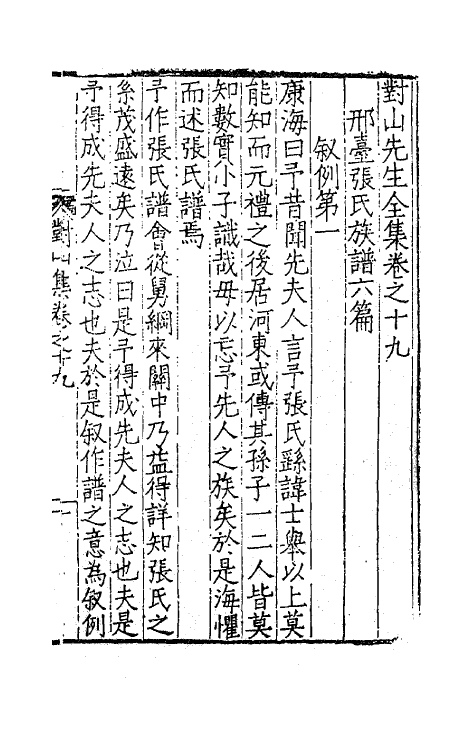 對山先生全集卷之十九
邢臺張氏族譜六篇
叙例第一
康海曰予昔聞先夫人言予張氏繇諱士舉以上莫
能知而元禮之後居河東或傳其孫子一二人皆莫
知數實小子識哉毋以忘予先人之族矣於是海懼
而述張氏譜焉
予作張氏譜會從舅綱來關中乃益得詳知張氏之
系茂盛遠矣乃泣曰是予得成先夫人之志也夫是
予得成先夫人之志也夫於是叙作譜之意為叙例
對山集卷之十九
一